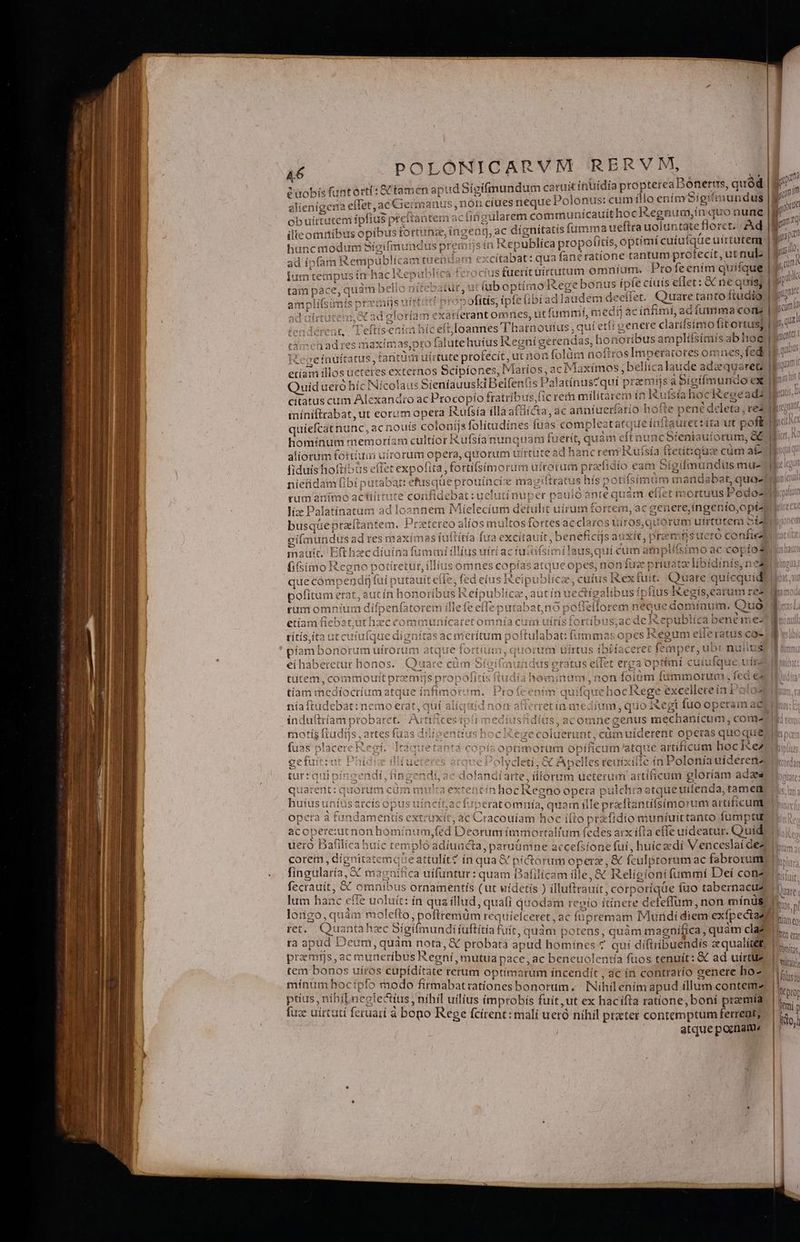 46 POLONICARVM RERVM,
è uobis sunt orti: & tamen apud Sigismundum caruit inuidia propterea Bonerus, quòd
alienigena esset, ac Germanus, non ciues neque Polonus: cum illo enim Sigismundus
ob uirtutem ipsius præstantem ac singularem communicauit hoc Regnum, in quo nunc
ille omnibus opibus fortunæ, ingenij, ac dignitatis summa uestra uoluntate floret. Ad
hunc modum Sigismundus premijs in Republica propositis, optimi cuiusque uirtutem
ad ipsam Rempublicam tuendam excitabat: qua sanè ratione tantum profecit, ut nul-
lum tempus in hac Republica ferocius fuerit uirtutum omnium. Pro se enim quisque
tam pace, quàm bello nitebatur, ut sub optimo Rege bonus ipse ciuis esset: & ne quis,
amplissimis præmijs uirtuti propositis, ipse sibi ad laudem deesset. Quare tanto studio
ad uirtutem, & ad gloriam exarserant omnes, ut summi, medij ac infimi, ad summa con-
tenderent. Testis enim hic est Ioannes Tharnouius, qui etsi genere clarissimo sit ortus,
tamen ad res maximas, pro salute huius Regni gerendas, honoribus amplissimis ab hoc
Rege inuitatus, tantùm uirtute profecit, ut non solùm nostros Imperatores omnes, sed
etiam illos ueteres externos Scipiones, Marios, ac Maximos, bellica laude adæquaret.
Quid uerò hic Nicolaus Sieniauuski Belsensis Palatinus? qui præmijs à Sigismundo ex
citatus cum Alexandro ac Procopio fratribus, sic rem militarem in Russia hoc Rege ad-
ministrabat, ut eorum opera Russia illa afflicta, ac anniuersario hoste penè deleta, re-
quiescat nunc, ac nouis colonijs solitudines suas compleat atque instauret: ita ut post
hominum memoriam cultior Russia nunquam fuerit, quàm est nunc Sieniauiorum, &
aliorum fortium uirorum opera, quorum uirtute ad hanc rem Russia stetit: quæ cùm as-
siduis hostibus esset exposita, fortissimorum uirorum præsidio eam Sigismundus mu-
niendam sibi putabat: eiusque prouinciæ magistratus his potissimùm mandabat, quo-
rum animo ac uirtute confidebat: ueluti nuper paulò antè quàm esset mortuus Podo-
liæ Palatinatum ad Ioannem Mielecium detulit uirum fortem, ac genere, ingenio, opi-
busque præstantem. Prætereo alios multos fortes ac claros uiros, quorum uirtutem Si-
gismundus ad res maximas iustitia sua excitauit, beneficijs auxit, præmijs uerò confir-
mauit. Est hæc diuina summi illius uiri ac iustissimi laus, qui cum amplissimo ac copio-
sissimo Regno potiretur, illius omnes copias atque opes, non suæ priuatæ libidinis, ne-
que compendij sui putauit esse, sed eius Reipublicæ, cuius Rex fuit. Quare quicquid
positum erat, aut in honoribus Reipublicæ, aut in uectigalibus ipsius Regis, earum re-
rum omnium dispensatorem ille se esse putabat, nõ possessorem neque dominum. Quò
etiam fiebat, ut hæc communicaret omnia cum uiris fortibus, ac de Republica bene me-
ritis, ita ut cuiusque dignitas ac meritum postulabat: summas opes Regum esse ratus co-
piam bonorum uirorum atque fortium, quorum uirtus ibi iaceret semper, ubi nullus
ei haberetur honos. Quare cùm Sigismundus gratus esset erga optimi cuiusque uir-
tutem, commouit præmijs propositis studia hominum, non solùm summorum, sed e-
tiam mediocrium atque infimorum. Pro se enim quisque hoc Rege excellere in Polo-
nia studebat: nemo erat, qui aliquid non afferret in medium, quo Regi suo operam ac
industriam probaret. Artifices ipsi mediusfidius, ac omne genus mechanicum, com-
motis studijs, artes suas diligentius hoc Rege coluerunt, cùm uiderent operas quoque
suas placere Regi. Itaque tanta copia optimorum opificum atque artificum hoc Re-
ge fuit: ut Phidiæ illi ueteres atque Polycleti, & Apelles reuixisse in Polonia uideren-
tur: qui pingendi, fingendi, ac dolandi arte, illorum ueterum artificum gloriam adæ-
quarent: quorum cùm multa extent in hoc Regno opera pulchra atque uisenda, tamen
huius unius arcis opus uincit, ac superat omnia, quam ille præstantissimorum artificum
opera à fundamentis extruxit, ac Cracouiam hoc isto præsidio muniuit tanto sumptu
ac opere: ut non hominum, sed Deorum immortalium sedes arx ista esse uideatur. Quid
uerò Basilica huic templo adiuncta, paruúmne accessione sui, huic ædi Venceslai de-
corem, dignitatemque attulit? in qua & pictorum operæ, & sculptorum ac fabrorum
singularia, & magnifica uisuntur: quam Basilicam ille, & Religioni summi Dei con-
secrauit, & omnibus ornamentis (ut uidetis) illustrauit, corporique suo tabernacu-
lum hanc esse uoluit: in qua illud, quasi quodam regio itinere defessum, non minùs
longo, quàm molesto, postremùm requiesceret, ac supremam Mundi diem expecta-
ret. Quanta hæc Sigismundi iustitia fuit, quàm potens, quàm magnifica, quàm cla-
ra apud Deum, quàm nota, & probata apud homines? qui distribuendis æqualiter
præmijs, ac muneribus Regni, mutua pace, ac beneuolentia suos tenuit: & ad uirtu-
tem bonos uiros cupiditate rerum optimarum incendit, ac in contrario genere ho-
minum hoc ipso modo firmabat rationes bonorum. Nihil enim apud illum contem-
ptius, nihil neglectius, nihil uilius improbis fuit, ut ex hac ista ratione, boni præmia
suæ uirtuti seruari à bono Rege scirent: mali uerò nihil præter contemptum ferrent,
atque pœnam.